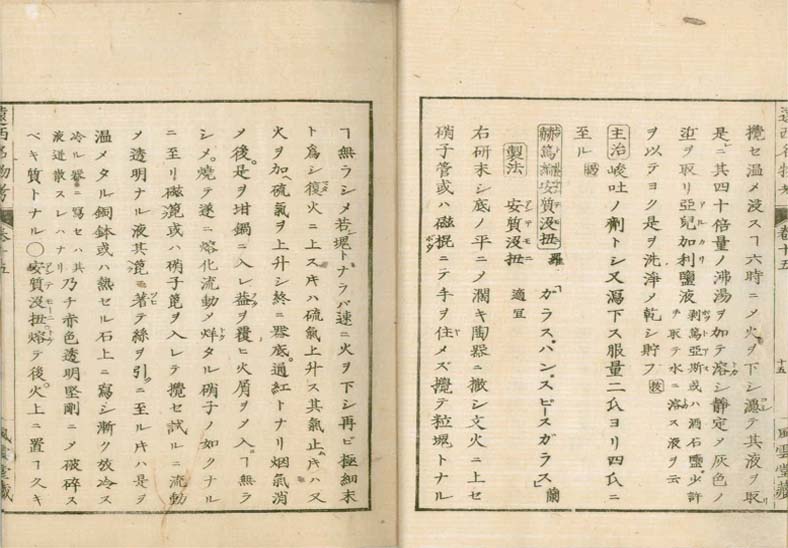 攪セ温メ浸スヿ六時ニメ火ヲ下シ濾テ其液ヲ取リ
是ニ其四十倍量ノ沸湯ヲ加テ溶シ静定メ灰色ノ
ヲ取リ亞兒加利鹽液 剥篤亞斯或ハ酒石鹽少許
ヲ取テ水ニ溶ス液ヲ云
ヲ以テヨク是ヲ洗浄メ乾シ貯フ
主治 峻吐ノ劑トシ又瀉下ス服量二氏ヨリ四氏ニ
至ル
安質没扭 羅 「ガラス、ハン、スピースガラス」蘭
製法 安質没扭 適宜
右研末シ底ノ平ニメ濶キ陶器ニ撒シ文火ニ上セ
硝子管或ハ磁掍ニテ手ヲ住メズ攪テ粒塊トナル
ヿ無ラシメ若塊トナラバ速ニ火ヲ下シ再ビ極細末
ト為シ復火ニ上ス𪜈ハ硫氣上升ス其氣止𪜈ハ又
火ヲ加ヘ硫氣ヲ上升シ終ニ器底通紅トナリ烟氣消
メ後是ヲ坩鍋ニ入レ蓋ヲ覆ヒ火屑ヲメ入ヿ無ラ
シメ燒テ遂ニ熔化流動メ烊タル硝子ノ如クナル
ニ至リ磁箆或ハ硝子箆ヲ入レテ攪セ試ルニ流動
メ透明ナル液其箆ニ著テ絲ヲ引ニ至ル𪜈ハ是ヲ
温メタル銅鉢或ハ熱セル石上ニ寫シ漸ク放冷ス
冷ル磐ニ寫セハ其
液迸散スレハナリ 乃チ赤色透明堅剛ニメ破碎ス
ベキ質トナル○安質没扭熔テ後火上ニ置ヿ久キ
遠西名物考
巻十五
十五
風雲堂藏